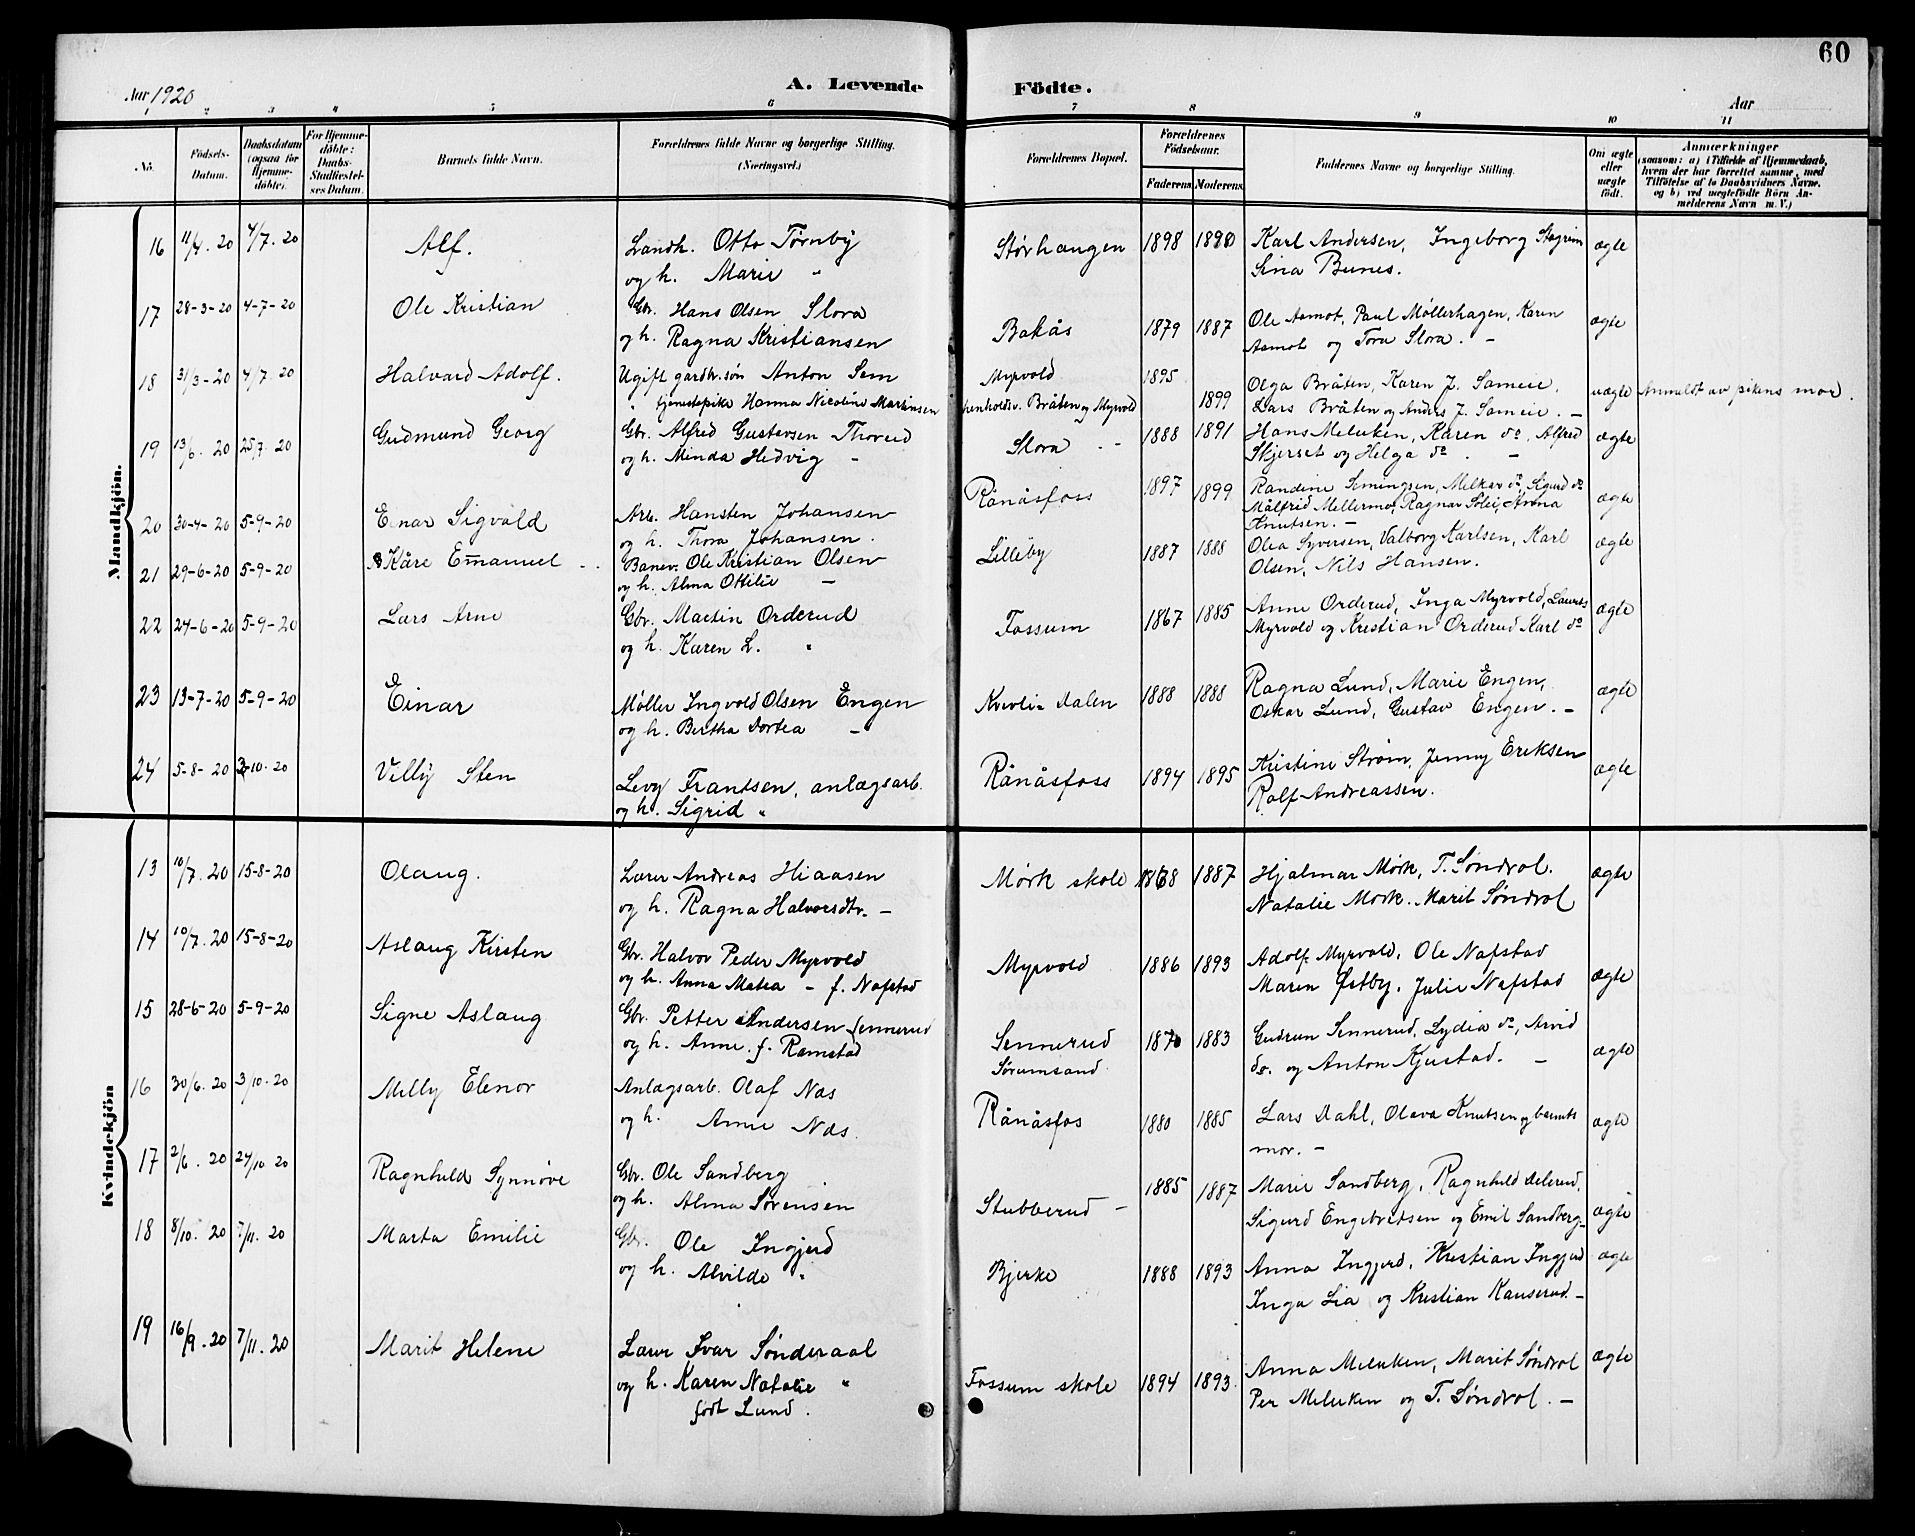 60
Aar 1920
A. Levende Födte.
Aar
1 2 3 4 5 6 7 8 9 10 11
No.
Födsels-Datum.
Daabsdatum (ogsaa for Hjemmedöbte).
For Hjemmedöbte: Daabs-Stadfæstelses Datum.
Barnets fulde Navn.
Forældrenes fulde Navne og borgerlige Stilling. (Næringsvei.)
Forældrenes Bopæl.
Forældrenes Födselsaar.
Faderens. Moderens.
Faddernes Navne og borgerlige Stilling.
Om ægte eller uægte født.
Anmærkninger (saasom: a) i Tilfælde af Hjemmedaab, hvem der har forrettet samme, med Tilföielse af to Daabsvidners Navne, og b) ved uægtefödte Börn Anmelderens Navn m. V.)
Mandkjön.
16 11/4. 20 4/7. 20 Alf. Landh. Otto Tørnby Størhaugen 1898 1890 Karl Andersen, Ingeborg ægte
og h. Marie " Sina Bunes.
17 28-3-20 4-7-20 Ole Kristian Gbr. Hans Olsen Slora Bakås 1879 1887 Ole Aamot, Paul Møllerhagen, Karen ægte
og h. Ragna Kristiansen Aamot og Tora Slora. -
18 31/3-20 4/7. 20 Halvard Adolf. Ugift gardbr.søn Anton Sem Myrvold 1895 Olga Bråten, Karen J. Sameie, uægte Anmeldt av pikens mor.
" tjenestepike Hanna Nicoline Martinsen henholdsv. Bråten og Myrvold 1899 Lars Bråten og Anders J. Sameie. -
19 13/6. 20 25/7. 20 Gudmund Georg Gbr. Alfred Gustavsen Thorud Slora 1888 1891 Hans Meluken, Karen do, Alfred ægte
og h. Minda Hedvig - Skjerset og Helga do. -
20 30-4-20 5-9-20 Einar Sigvald Arb. Hansten Johansen Rånåsfoss 1897 1899 Randine Semingsen, Melkær do, Sigurd do ægte
og h. Thora Johansen. Målfrid Mellermo, Ragnar Solei, Anna
Knutsen. -
21 29-6-20 5-9-20 Kåre Emanuel Banev. Ole Kristian Olsen Lilleby 1887 1888 Olea Syversen, Valborg Karlsen, Karl ægte
og h. Alma Ottilie - Olsen, Nils Hansen.
22 24-6-20 5-9-20 Lars Arne Gbr. Martin Orderud Fossum 1867 1885 Anne Orderud, Inga Myrvold, Laurits ægte
og h. Karen L. " Myrvold og Kristian Orderud Karl do
23 13-7-20 5-9-20 Einar Møller Ingvold Olsen Engen Kvevli-Dalen 1888 1888 Ragna Lund, Marie Engen, ægte
og h. Bertha Dortea - Oskar Lund, Gustav Engen. -
24 5-8-20 3-10-20 Villy Sten Levy Frantsen, anlægsarb. Rånåsfoss 1894 1895 Kristine Strøm, Jenny Eriksen ægte
og h. Sigrid " Rolf Andreassen.
Kvindekjön
13 10/7. 20 15-8-20 Olaug. Lærer Andreas Hiaasen Mørk skole 1868 1887 Hjalmar Mørk, T. Søndrol. ægte
og h. Ragna Halvorsdtr. - Natalie Mørk. Marit Søndrol
14 10/7. 20 15-8-20 Aslaug Kirsten Gbr. Halvor Peder Myrvold Myrvold 1886 1893 Adolf Myrvold, Ole Nafstad ægte
og h. Anna Matea - f. Nafstad Maren Østby, Julie Nafstad
15 28-6-20 5-9-20 Signe Aslaug Gbr. Petter Andersen Sennerud Sennerud 1870 1883 Gudrun Sennerud, Lydia do, Arvid ægte
og h. Anne. f. Ramstad Sørumsand. do. og Anton Kjustad. -
16 30/6. 20 3/10. 20 Milly Elenor Anlægsarb. Olaf Næs Rånåsfos 1880 1885 Lars Dahl, Olava Knutsen og barnets ægte
og h. Anne Næs. mor. -
17 2/6. 20 24/10 20 Ragnhild Synnøve Gbr. Ole Sandberg Stubberud - 1885 1887 Marie Sandberg, Ragnhild Delerud, ægte
og h. Alma Sørensen Sigurd Engebretsen og Emil Sandberg-
18 8/10. 20 7/11. 20 Marta Emilie Gbr. Ole Ingjerd Bjerke 1888 1893 Anna Ingjerd, Kristian Ingjerd ægte
og h. Alvilde " Inga Lia og Kristian Kauserud. -
19 16/9. 20 7/11. 20 Marit Helene Lærer Ivar Sønderaal Fossum skole 1894 1893. Anna Meluken, Marit Søndrol ægte
og h. Karen Natalie " Per Meluken og T. Søndrol. -
født Lund.